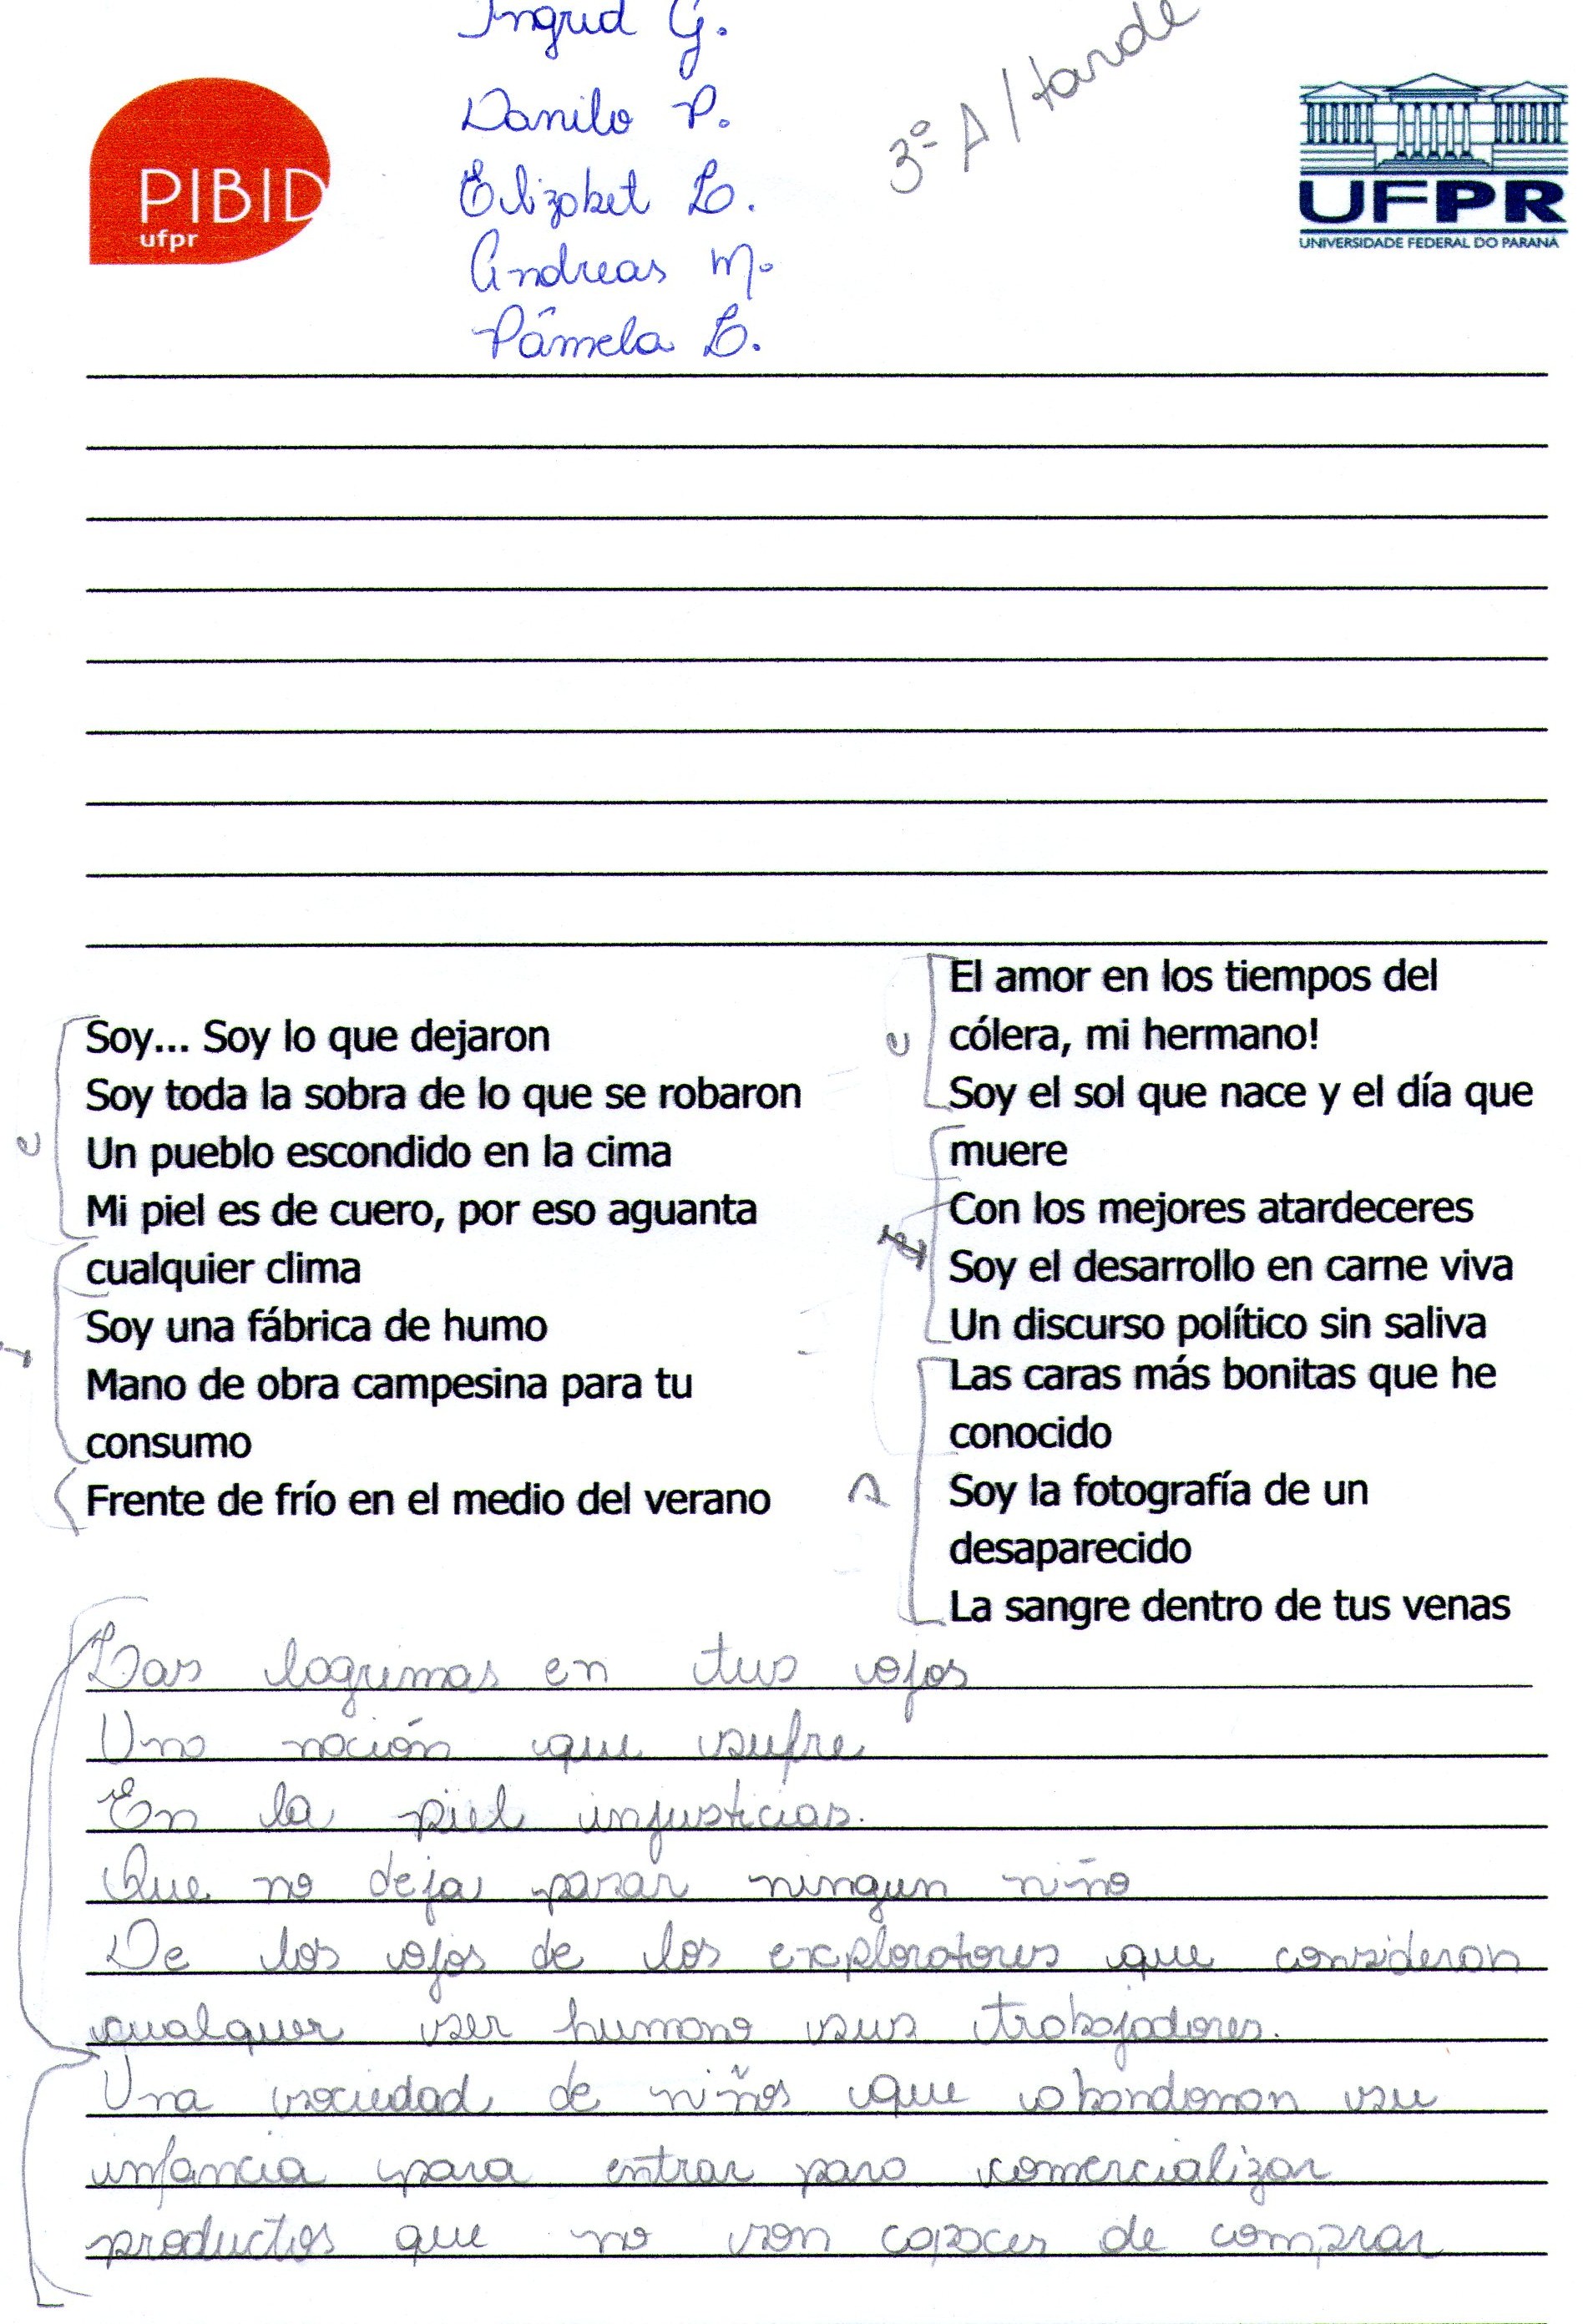 Ingrid G.
Danilo P.
Elizabet L.
Andreas M.
Pâmela L.
3º A / tarde
PIBID
ufpr
UFPR
UNIVERSIDADE FEDERAL DO PARANÁ
Soy... Soy lo que dejaron
Soy toda la sobra de lo que se robaron
Un pueblo escondido en la cima
Mi piel es de cuero, por eso aguanta
cualquier clima
Soy una fábrica de humo
Mano de obra campesina para tu
consumo
Frente de frío en el medio del verano
El amor en los tiempos del
cólera, mi hermano!
Soy el sol que nace y el día que
muere
Con los mejores atardeceres
Soy el desarrollo en carne viva
Un discurso político sin saliva
Las caras más bonitas que he
conocido
Soy la fotografía de un
desaparecido
La sangre dentro de tus venas
Las lagrimas en tus ojos
Una nación que sufre
En la piel injusticias.
Que no deja pasar ningun niño
De los ojos de los exploratores que consideran
cualquer ser humano sus trabajadores.
Una sociedad de niños que abandonan su
infancia para entrar para comercializar
productos que no son capaces de comprar